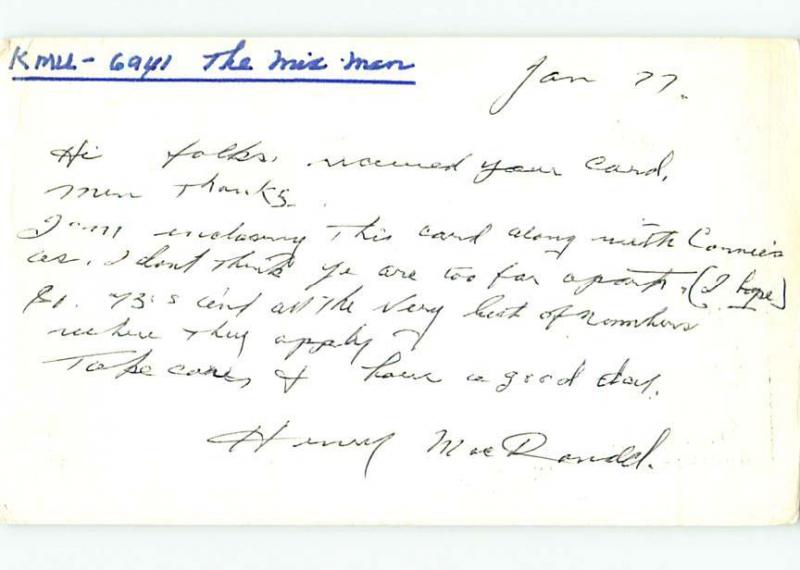 KMU-6941 The Mix-Man
Jan 77.
Hi folks, received your card,
Men Thanks.
I am enclosing This card along with Connie's
as, I dont think ye are too far apart, (I hope)
73's and all the Very best of Numbers
where they apply
Take care, & have a good day.
Henry MacDonald.